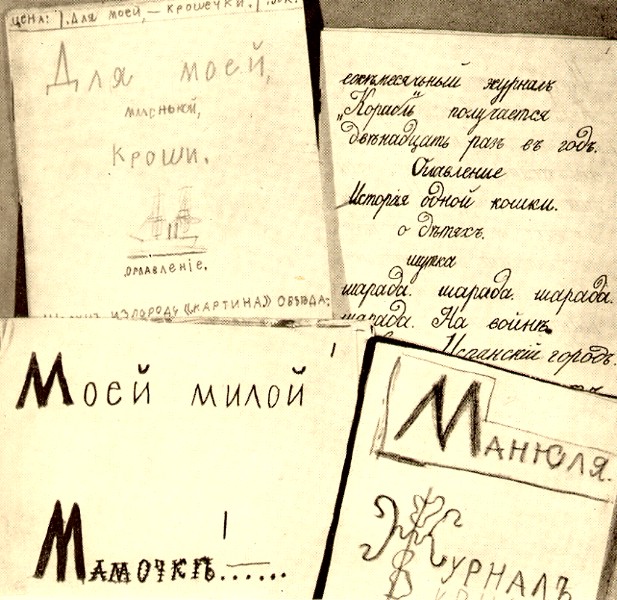 ЦЕНА: 1. Для моей, — крошечки.
Для моей,
маленькой,
кроши.
оглавленіе.
ИЗ ГОРОДЪ («КАРТИНА») ОБѢДА;
ежемѣсячный журналъ
„Корабль" получается
двѣнадцать разъ въ годъ.
Оглавленіе
Исторія одной кошки.
о дѣтяхъ.
шутка
шарада. шарада. шарада.
шарада. На войнѣ.
Испанскій городъ.
Моей милой
Мамочкѣ......
Манюля.
Журналъ